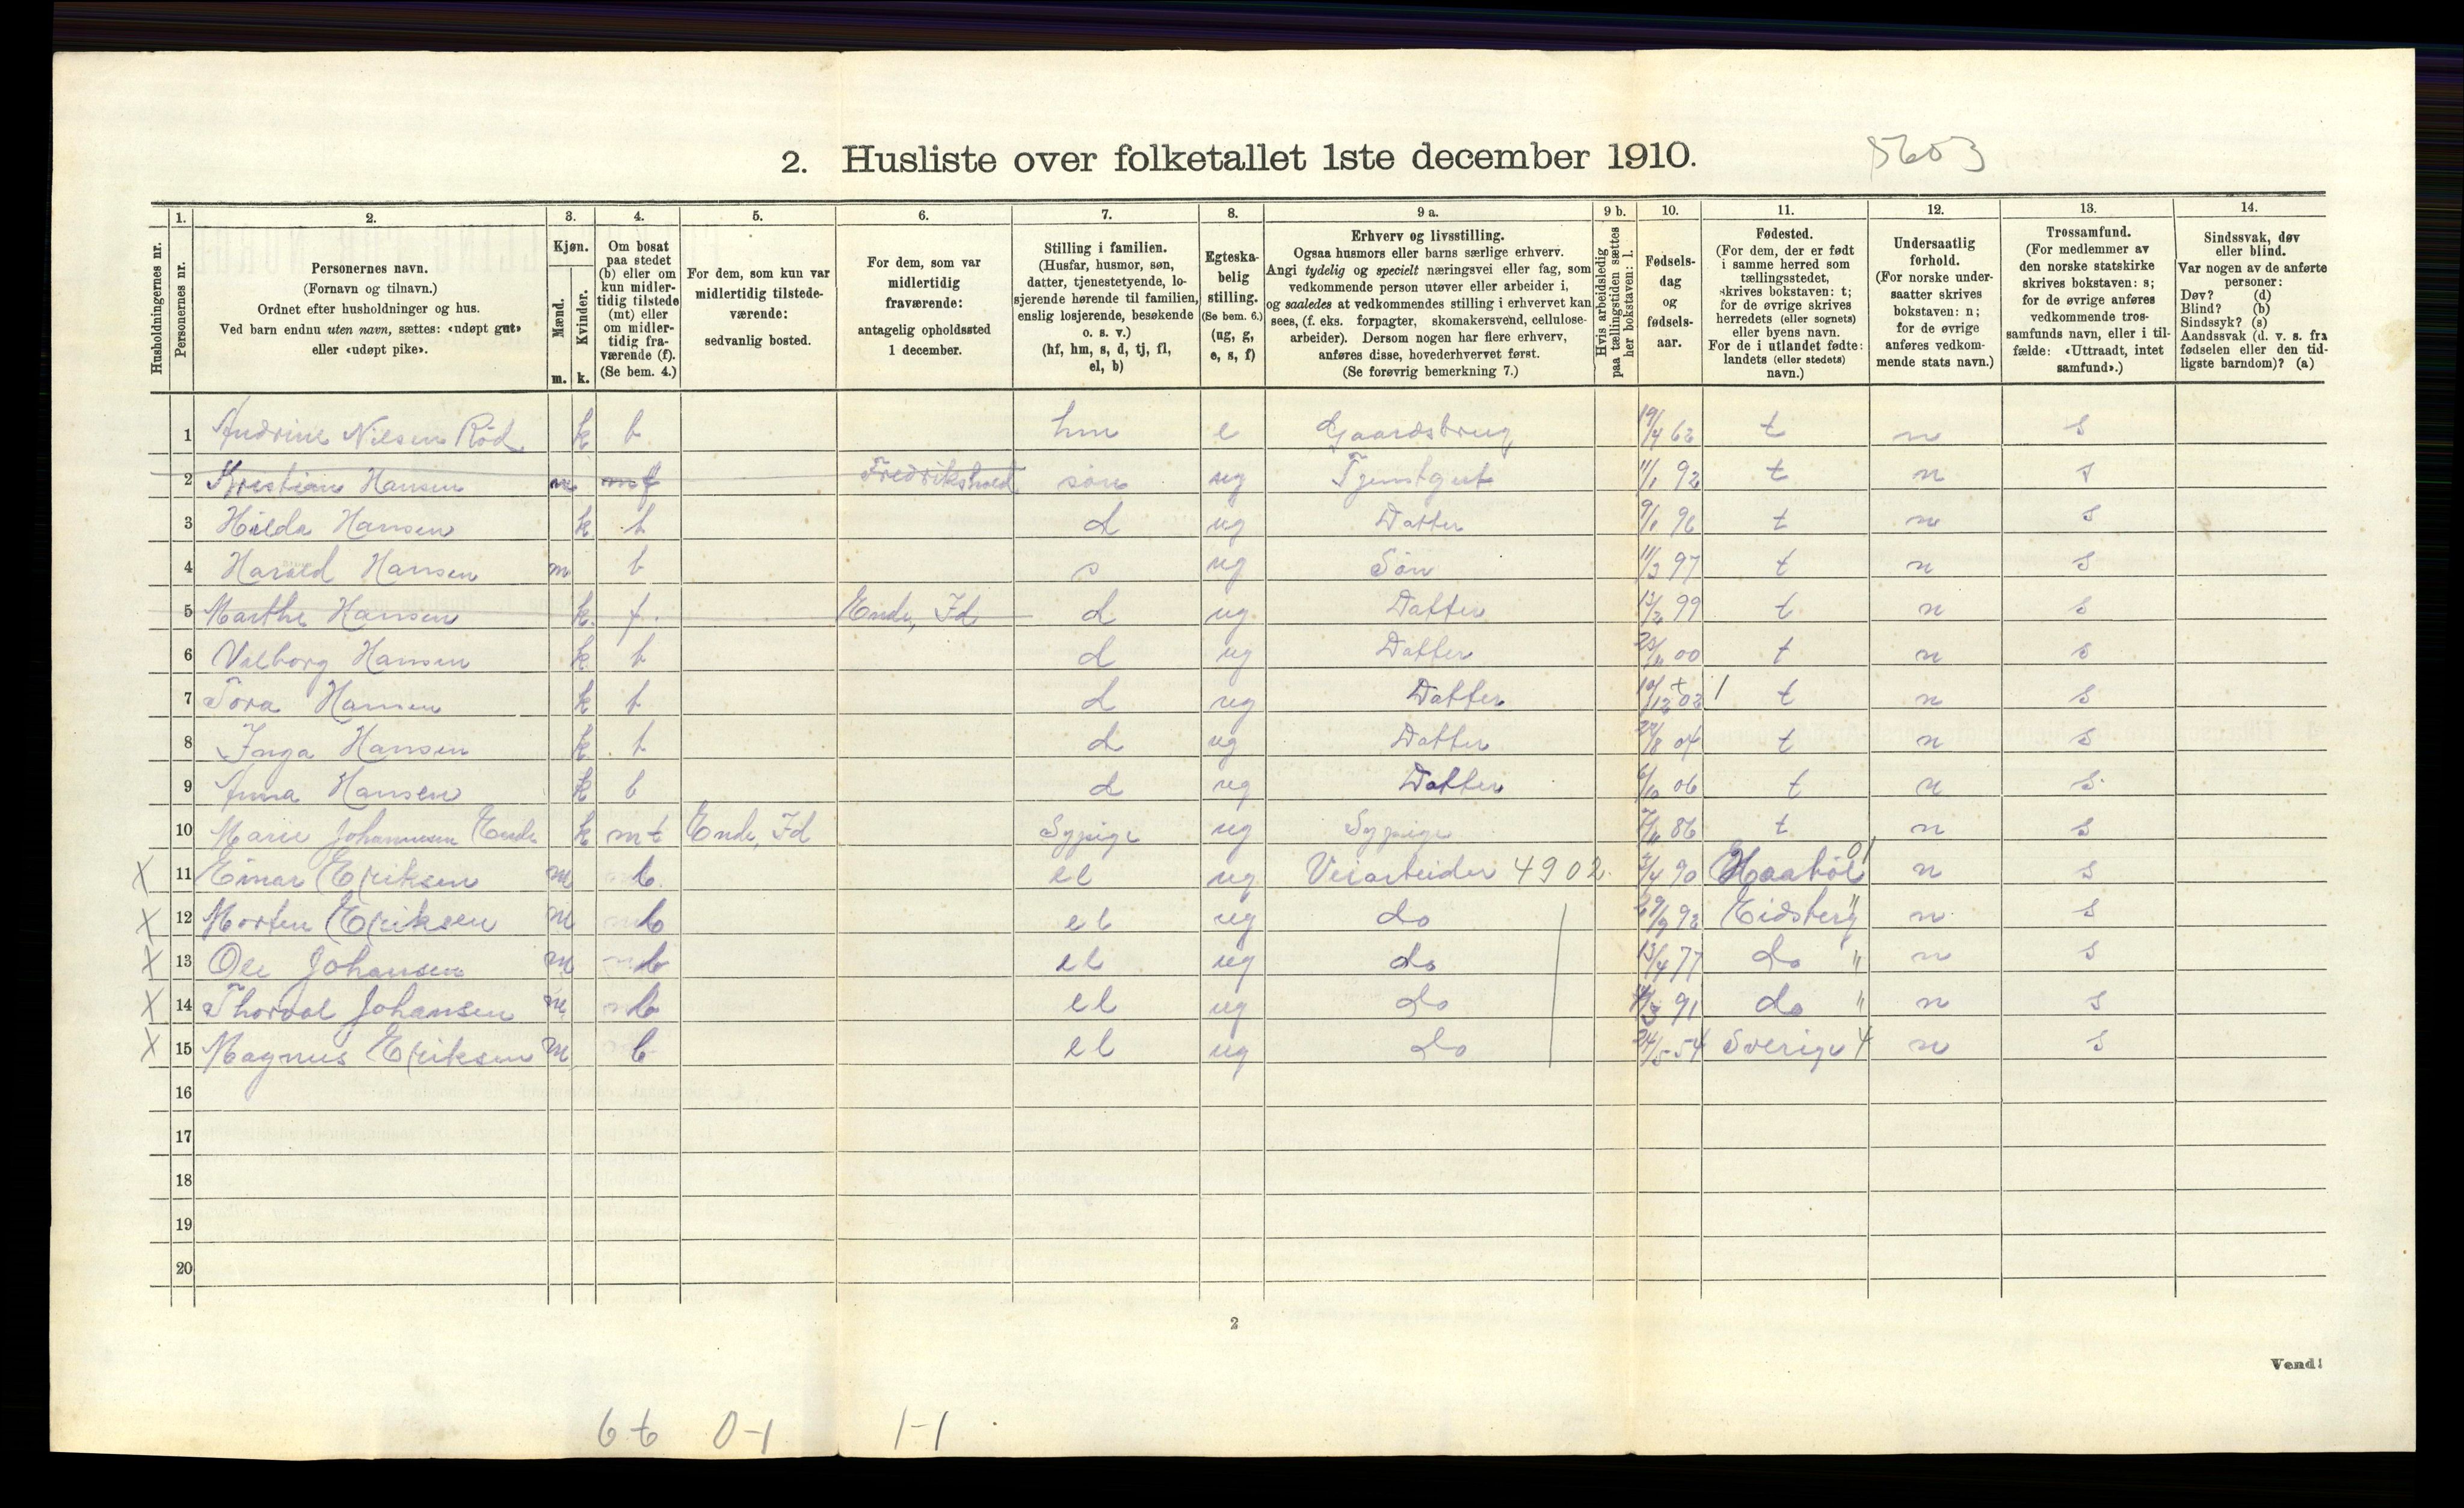 2. Husliste over folketallet 1ste december 1910.
5603
Husholdningernes nr.
1. Personernes nr.
2. Personernes navn. (Fornavn og tilnavn.) Ordnet efter husholdninger og hus. Ved barn endnu uten navn, sættes: «udøpt gut» eller «udøpt pike».
3. Kjøn. Mænd. m. Kvinder. k.
4. Om bosat paa stedet (b) eller om kun midlertidig tilstede (mt) eller om midlertidig fraværende (f). (Se bem. 4.)
5. For dem, som kun var midlertidig tilstedeværende: sedvanlig bosted.
6. For dem, som var midlertidig fraværende: antagelig opholdssted 1 december.
7. Stilling i familien. (Husfar, husmor, søn, datter, tjenestetyende, losjerende hørende til familien, enslig losjerende, besøkende o. s. v.) (hf, hm, s, d, tj, fl, el, b)
8. Egteskabelig stilling. (Se bem. 6.) (ug, g, e, s, f)
9 a. Erhverv og livsstilling. Ogsaa husmors eller barns særlige erhverv. Angi tydelig og specielt næringsvei eller fag, som vedkommende person utøver eller arbeider i, og saaledes at vedkommendes stilling i erhvervet kan sees, (f. eks. forpagter, skomakersvend, cellulosearbeider). Dersom nogen har flere erhverv, anføres disse, hovederhvervet først. (Se forøvrig bemerkning 7.)
9 b. Hvis arbeidsledig paa tællingstiden sættes her bokstaven: l.
10. Fødselsdag og fødselsaar.
11. Fødested. (For dem, der er født i samme herred som tællingsstedet, skrives bokstaven: t; for de øvrige skrives herredets (eller sognets) eller byens navn. For de i utlandet fødte: landets (eller stedets) navn.)
12. Undersaatlig forhold. (For norske undersaatter skrives bokstaven: n; for de øvrige anføres vedkommende stats navn.)
13. Trossamfund. (For medlemmer av den norske statskirke skrives bokstaven: s; for de øvrige anføres vedkommende trossamfunds navn, eller i tilfælde: «Uttraadt, intet samfund».)
14. Sindssvak, døv eller blind. Var nogen av de anførte personer: Døv? (d) Blind? (b) Sindssyk? (s) Aandssvak (d. v. s. fra fødselen eller den tidligste barndom)? (a)
1 Andrine Nilsen Röd k b hm e Gaardsbrug 19/4 62 t n s
2 Kristian Hansen m mt f Fredrikshald sön ug Tjenstgut 11/1 92 t n s
3 Hilda Hansen k b d ug Datter 9/1 96 t n s
4 Harald Hansen m b s ug Sön 11/3 97 t n s
5 Marthe Hansen k. f. Ende, Id d ug. Datter 99 t n s
6 Valborg Hansen k b d ug Datter 00 t n s
7 Tora Hansen k b d ug Datter 10/12 03 t n s
8 Inga Hansen k b d ug Datter 04 t n s
9 Anna Hansen k b d ug Datter 6/10 06 t n s
10 Marie Johannesen Ende k mt Ende, Id Sypige ug Sypige 86 t n s
X 11 Einar Eriksen m b el ug. Veiarbeider 4902. 90 Haaböl 01 n s
X 12 Morten Eriksen m b el ug do 29/9 92 Eidsberg " n s
X 13 Ole Johansen m b el ug do 13/4 77 do " n s
X 14 Thorval Johansen m b el ug do 91 do " n s
X 15 Magnus Eriksen m b el ug do 24/5 54 Sverige 4 n s
16
17
18
19
20
2
Vend!
6 + 6 0-1 1-1